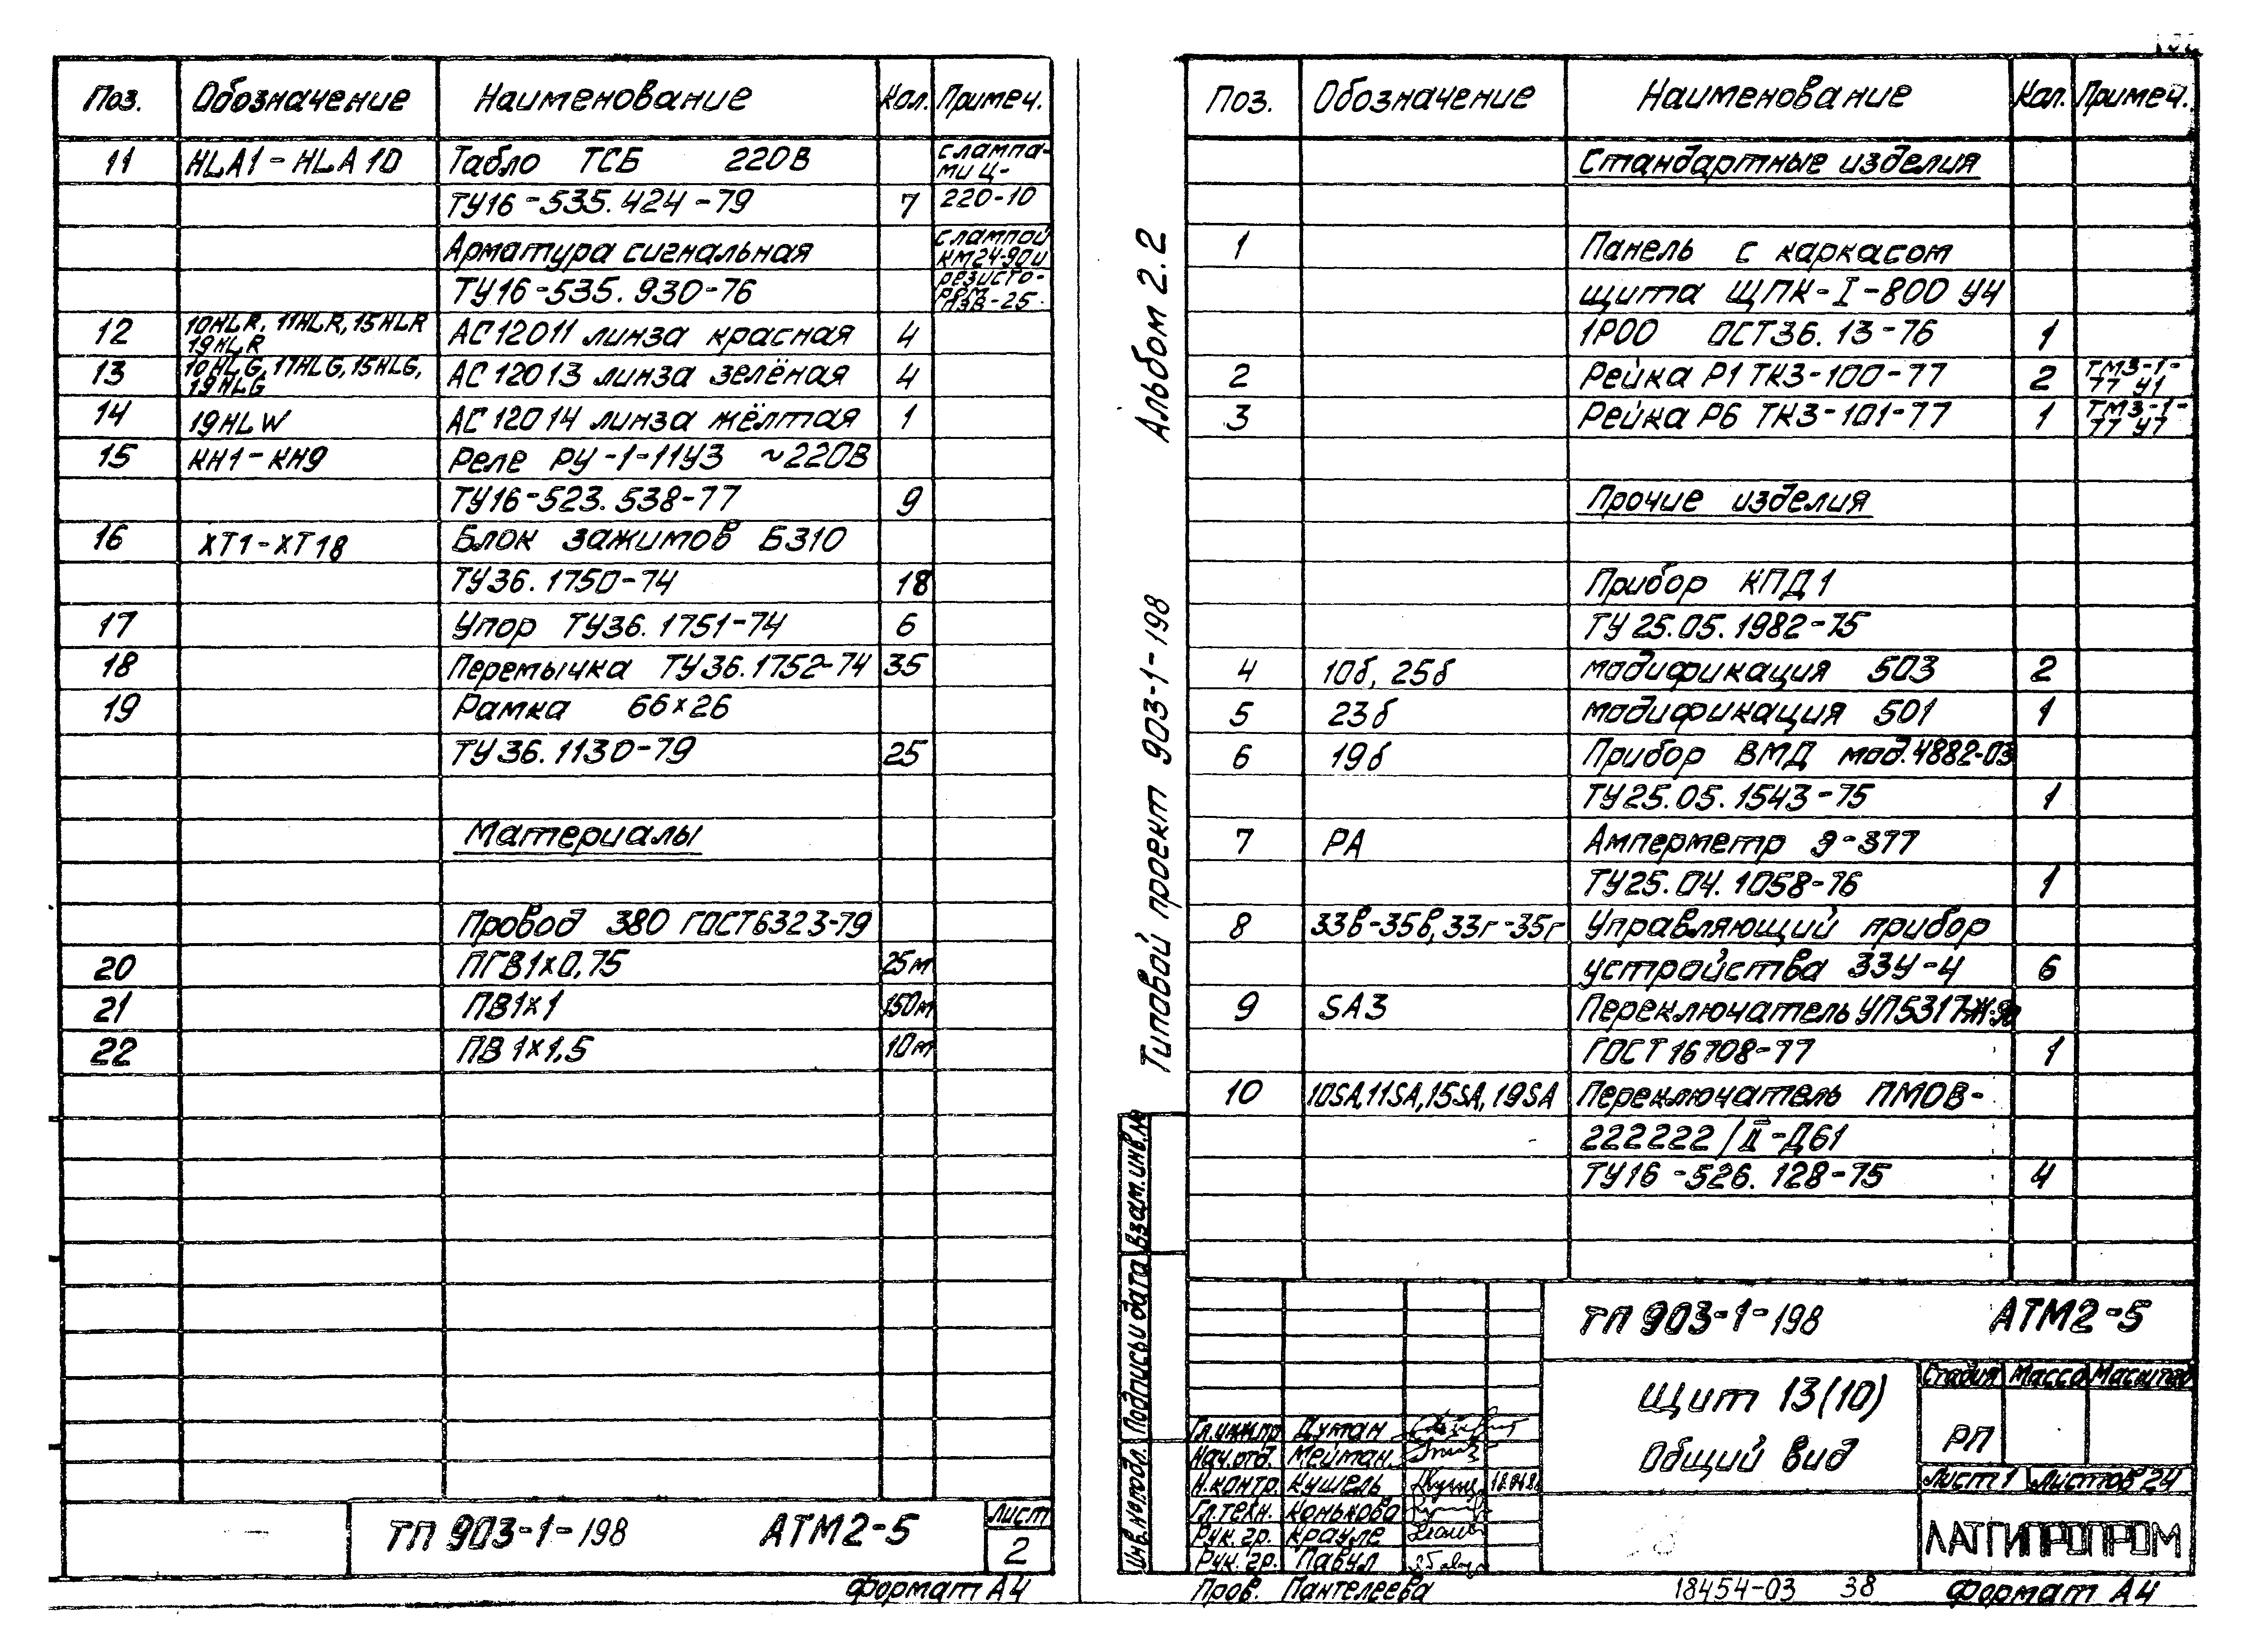 Поз. Обозначение Наименование Кол. Примеч.
11 HLA1-HLA10 Табло ТСБ 220В с лампа-
ми Ц-
ТУ16-535.424-79 7 220-10
Арматура сигнальная с лампой
КМ24-90и
ТУ16-535.930-76 резисто-
ром
ПЭВ-25
12 10HLR, 11HLR, 15HLR
19HLR АС12011 линза красная 4
13 10HLG, 17HLG, 15HLG,
19HLG АС12013 линза зелёная 4
14 19HLW АС12014 линза жёлтая 1
15 КН1-КН9 Реле РУ-1-11У3 ~220В
ТУ16-523.538-77 9
16 ХТ1-ХТ18 Блок зажимов Б310
ТУ36.1750-74 18
17 Упор ТУ36.1751-74 6
18 Перемычка ТУ36.1752-74 35
19 Рамка 66×26
ТУ36.1130-79 25
Материалы
Провод 380 ГОСТ6323-79
20 ПГВ1×0,75 25м
21 ПВ1×1 150м
22 ПВ1×1,5 10м
ТП 903-1-198 АТМ2-5 Лист
2
Формат А4
Альбом 2.2
Типовой проект 903-1-198
Взам.инв.№
Подпись и дата
Инв.№подл.
Поз. Обозначение Наименование Кол. Примеч.
Стандартные изделия
1 Панель с каркасом
щита ЩПК-I-800 У4
1Р00 ОСТ36.13-76 1
2 Рейка Р1 ТК3-100-77 2 ТМ3-1-
77 У1
3 Рейка Р6 ТК3-101-77 1 ТМ3-1-
77 У7
Прочие изделия
Прибор КПД1
ТУ25.05.1982-75
4 10б, 25б модификация 503 2
5 23б модификация 501 1
6 19б Прибор ВМД мод.4882-03
ТУ25.05.1543-75 1
7 РА Амперметр Э-377
ТУ25.04.1058-76 1
8 33в-35в, 33г-35г Управляющий прибор
устройства ЗЗУ-4 6
9 SA3 Переключатель УП5317-Ж-90
ГОСТ16708-77 1
10 10SA, 11SA, 15SA, 19SA Переключатель ПМОВ-
222222/II-Д61
ТУ16-526.128-75 4
ТП 903-1-198 АТМ2-5
Щит 13(10)
Общий вид
Стадия Масса Масштаб
РП
Лист 1 Листов 24
ЛАТГИПРОПРОМ
Гл.инж.пр Думан
Нач.отд. Мейман
Н.контр. Кушель
Гл.техн. Конькова
Рук.гр. Крауле
Рук.гр. Павул
Пров. Пантелеева
18454-03 38 Формат А4